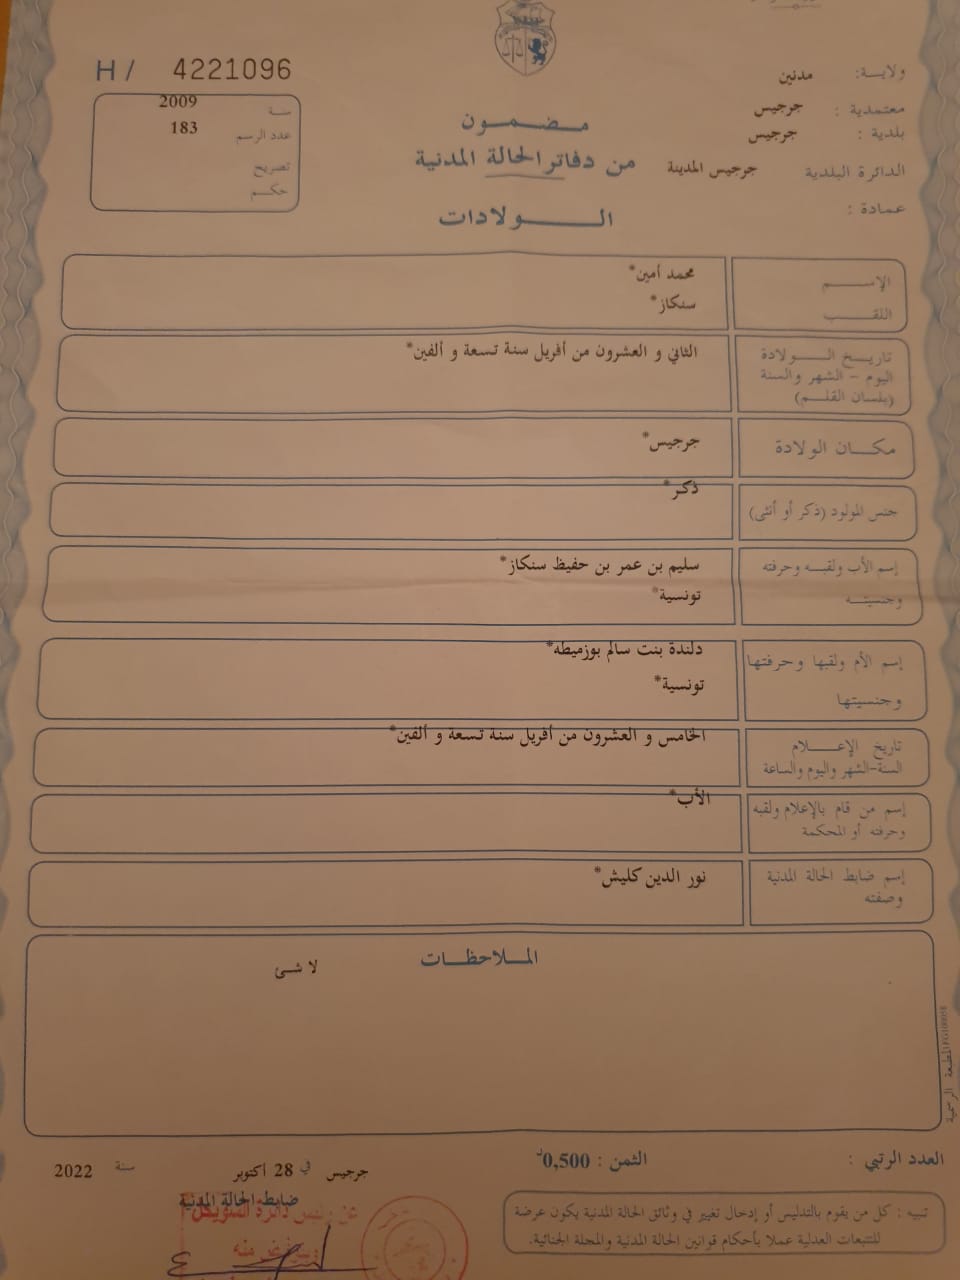 H / 4221096
ولاية: مدنين
معتمدية : جرجيس
بلدية : جرجيس
الدائرة البلدية جرجيس المدينة
عمادة :
سنة 2009
عدد الرسم 183
تصريح
حكم
مضمون
من دفاتر الحالة المدنية
الولادات
الإسم محمد أمين*
اللقب سنكاز*
تاريخ الولادة الثاني و العشرون من أفريل سنة تسعة و ألفين*
اليوم - الشهر والسنة
(بلسان القلم)
مكان الولادة جرجيس*
جنس المولود (ذكر أو أنثى) ذكر*
إسم الأب ولقبه وحرفته سليم بن عمر بن حفيظ سنكاز*
وجنسيته تونسية*
إسم الأم ولقبها وحرفتها دلندة بنت سالم بوزميطه*
وجنسيتها تونسية*
تاريخ الإعلام الخامس و العشرون من أفريل سنة تسعة و ألفين*
السنة-الشهر واليوم والساعة
إسم من قام بالإعلام ولقبه الأب*
وحرفته أو المحكمة
إسم ضابط الحالة المدنية نور الدين كليش*
وصفته
الملاحظات
لا شئ
المطبعة الرسمية
العدد الرتبي :
الثمن : 0,500د
جرجيس في 28 أكتوبر سنة 2022
ضابط الحالة المدنية
تنبيه : كل من يقوم بالتدليس أو إدخال تغيير في وثائق الحالة المدنية يكون عرضة
للتتبعات العدلية عملا بأحكام قوانين الحالة المدنية والمجلة الجنائية.